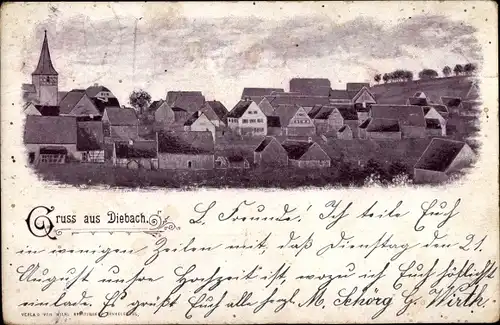 Gruss aus Diebach.
L. Freunde! Ich teile Euch
in wenigen Zeilen mit, daß Dienstag den 21.
August unsre Hochzeit ist, wozu ich Euch höflichst
einlade. Es grüßt Euch alle herzl. M. Schörg G. Wirth
VERLAG VON WILH.